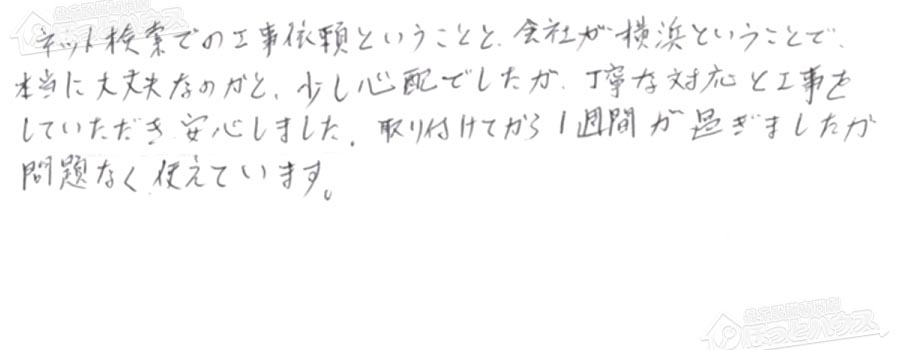 ネット検索での工事依頼ということと、会社が横浜ということで、
本当に大丈夫なのかと、少し心配でしたが、丁寧な対応と工事を
していただき安心しました。取り付けてから1週間が過ぎましたが
問題なく使えています。
ほっとハウス
ほっとハウス